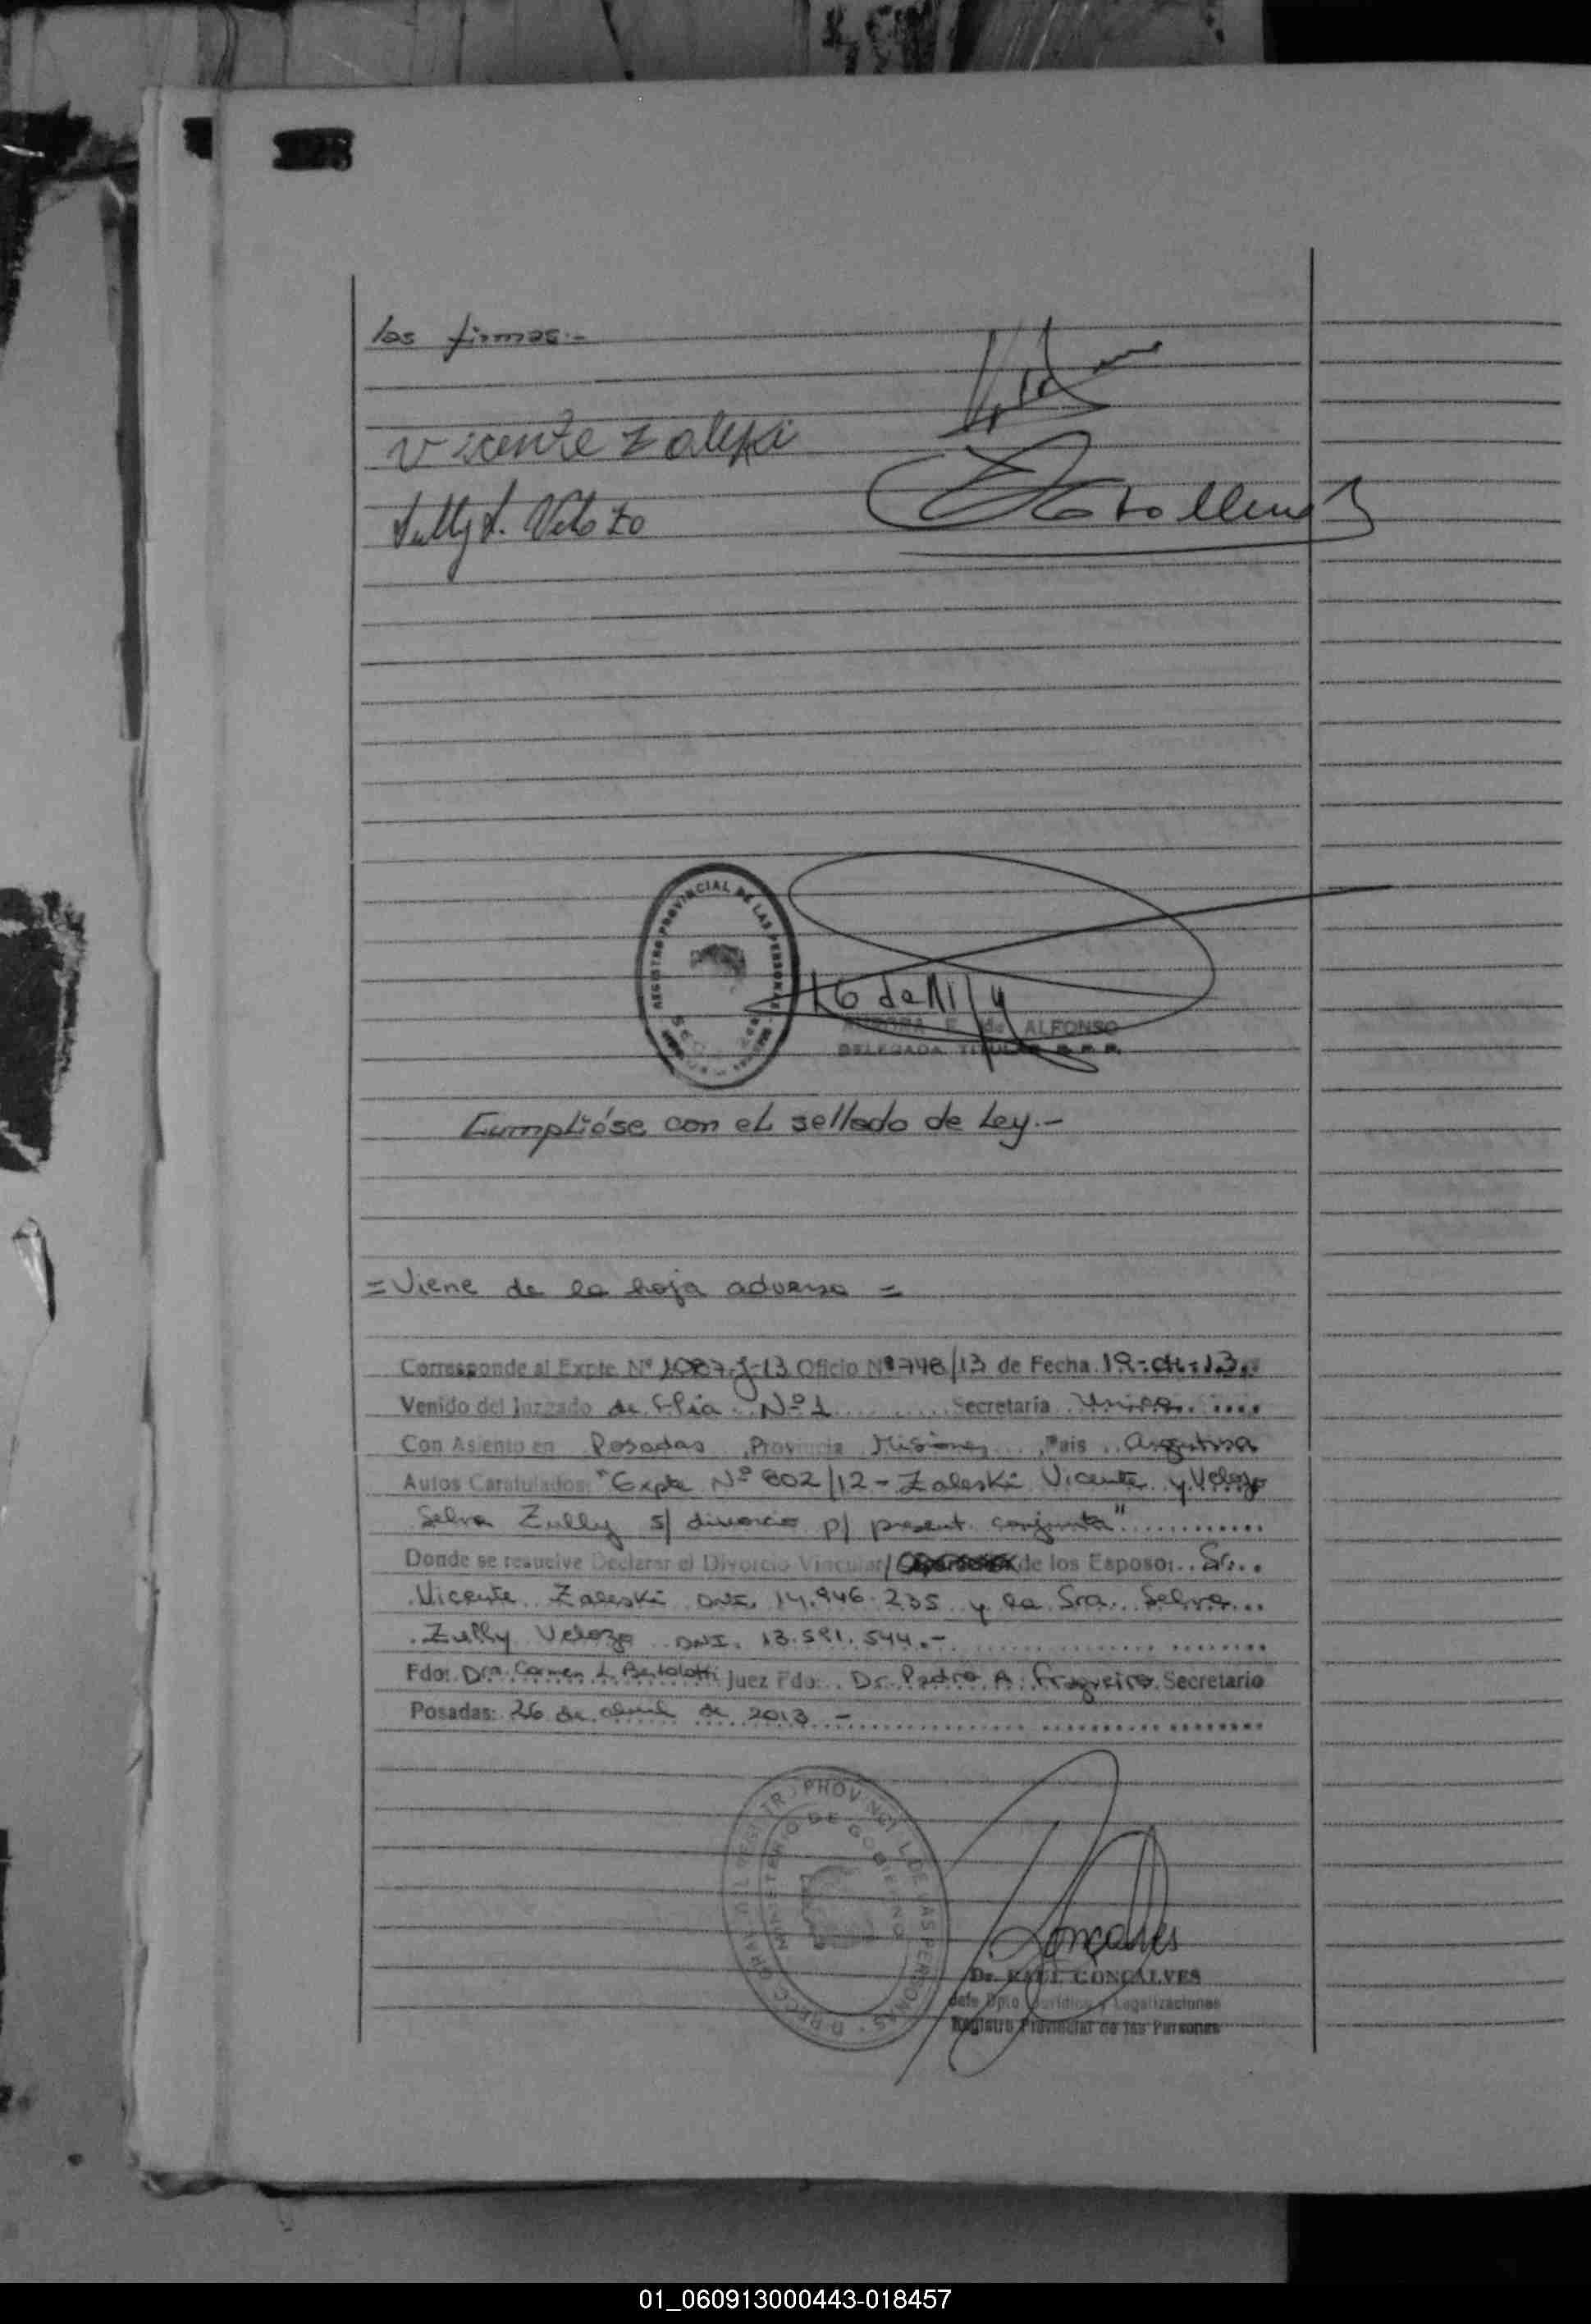 las firmas.-
Vicente Zaleski
Zully S. Velozo
REGISTRO PROVINCIAL DE LAS PERSONAS
E. de ALFONSO
DELEGADA TITULAR R. P. P.
Cumplióse con el sellado de Ley.-
= Viene de la hoja adversa =
Corresponde al Expte Nº 1087-J-13 Oficio Nº 748/13 de Fecha 19-04-13
Venido del Juzgado de Flia. Nº 1 Secretaría Unica
Con Asiento en Posadas, Provincia Misiones, Pais Argentina
Autos Caratulados: "Expte Nº 802/12 - Zaleski Vicente y Velozo
Selva Zully s/ divorcio p/ present. conjunta"
Donde se resuelve Declarar el Divorcio Vincular/ de los Esposos: Sr.
Vicente Zaleski DNI. 14.946.235 y la Sra. Selva
Zully Velozo DNI. 13.591.544.-
Fdo: Dra. Carmen L. Bertolotti Juez Fdo: Dr. Pedro A. Fragueiro Secretario
Posadas: 26 de abril de 2013 -
DIRECC GRAL DEL REGISTRO PROVINCIAL DE LAS PERSONAS
MINISTERIO DE GOBIERNO
Gonçalves
Dr. RAUL GONÇALVES
Jefe Dpto Jurídico y Legalizaciones
Registro Provincial de las Personas
01_060913000443-018457